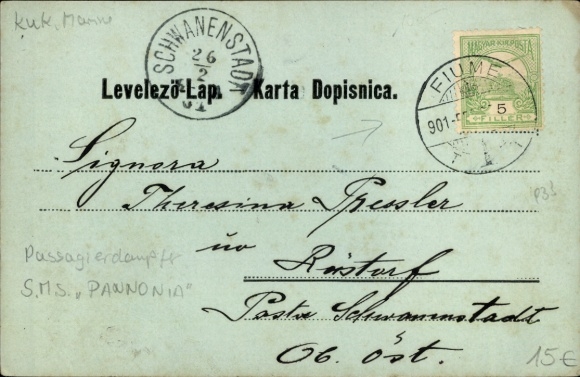 K.u.K. Marine
SCHWANENSTADT
26
2
MAGYAR KIR. POSTA
5
FILLER
FIUME
901
Levelező-Lap. Karta Dopisnica.
Signora
Theresina Pressler
in
Rüstorf
Posta Schwanenstadt
Ob. Öst.
Passagierdampfer
S.M.S. „PANNONIA"
15€